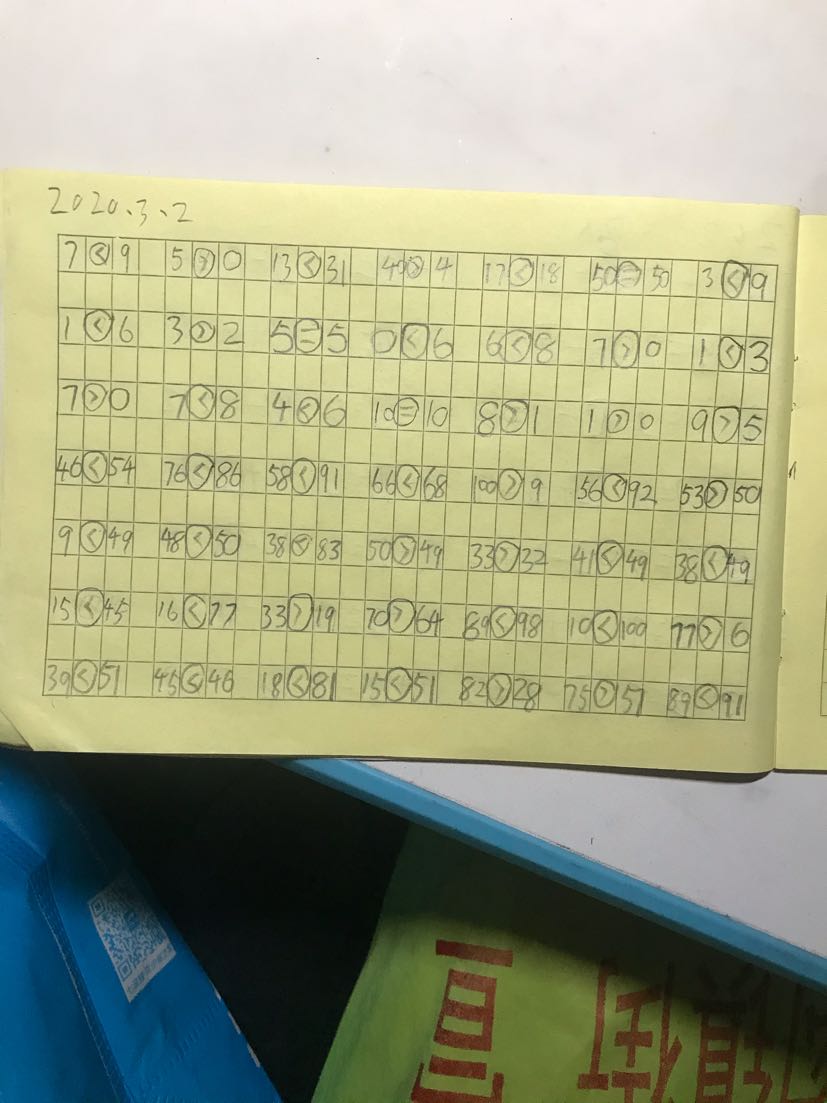 2020.3.2
7<9 5>0 13<31 40>4 17<18 50=50 3<9
1<6 3>2 5=5 0<6 6<8 7>0 1<3
7>0 7<8 4<6 10=10 8>1 1>0 9>5
46<54 76<86 58<91 66<68 100>9 56<92 53>50
9<49 48<50 38<83 50>49 33>32 41<49 38<49
15<45 16<77 33>19 70>64 89<98 10<100 77>6
39<51 45<46 18<81 15<51 82>28 75>57 89<91